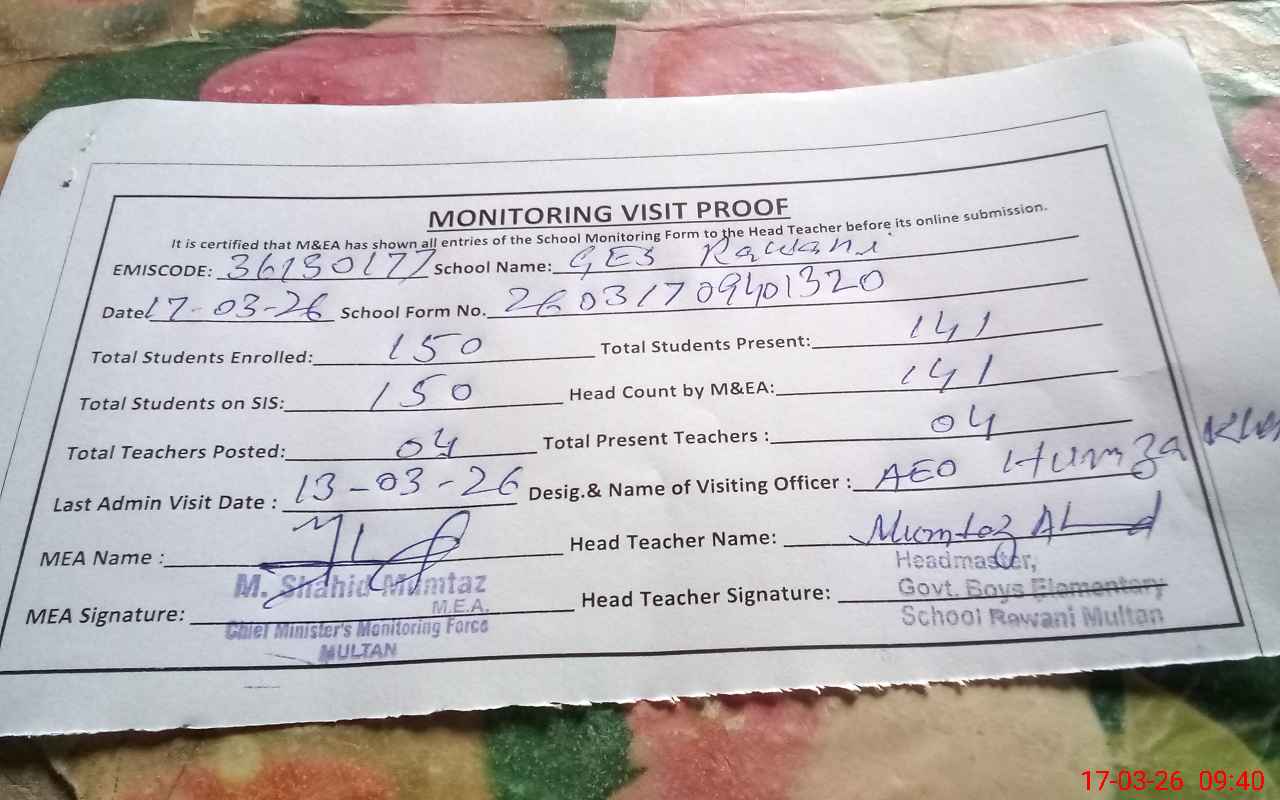 MONITORING VISIT PROOF
It is certified that M&EA has shown all entries of the School Monitoring Form to the Head Teacher before its online submission.
EMISCODE: 36130177 School Name: GES Rawani
Date 17-03-26 School Form No. 26031709401320
Total Students Enrolled: 150 Total Students Present: 141
Total Students on SIS: 150 Head Count by M&EA: 141
Total Teachers Posted: 04 Total Present Teachers : 04
Last Admin Visit Date : 13-03-26 Desig.& Name of Visiting Officer : AEO Humza
MEA Name : Head Teacher Name: Mumtaz Ahmad
M. Shahid Mumtaz Headmaster,
MEA Signature: M.E.A. Head Teacher Signature: Govt. Boys Elementary
Chief Minister's Monitoring Force School Rawani Multan
MULTAN
17-03-26 09:40